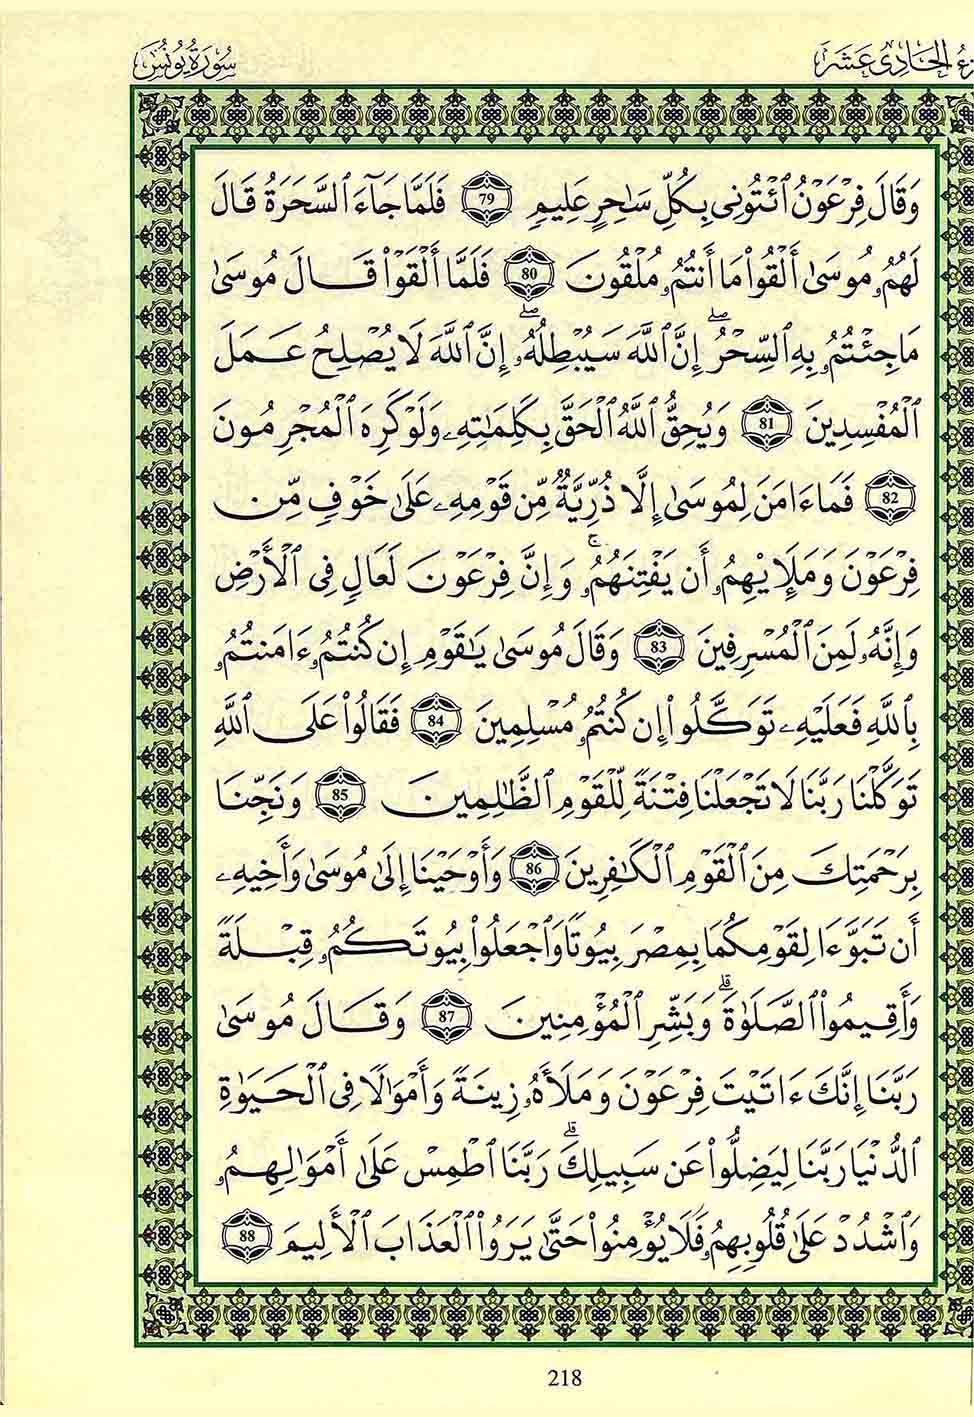 الحَادِى عَشَرَ
سُورَةُ يُونُسَ
وَقَالَ فِرْعَوْنُ ٱئْتُونِى بِكُلِّ سَٰحِرٍ عَلِيمٍ 79 فَلَمَّا جَآءَ ٱلسَّحَرَةُ قَالَ
لَهُمُۥ مُوسَىٰٓ أَلْقُوا۟ مَآ أَنتُمُۥ مُلْقُونَ 80 فَلَمَّآ أَلْقَوْا۟ قَالَ مُوسَىٰ
مَا جِئْتُمُۥ بِهِ ٱلسِّحْرُ ۖ إِنَّ ٱللَّهَ سَيُبْطِلُهُۥٓ ۖ إِنَّ ٱللَّهَ لَا يُصْلِحُ عَمَلَ
ٱلْمُفْسِدِينَ 81 وَيُحِقُّ ٱللَّهُ ٱلْحَقَّ بِكَلِمَٰتِهِۦ وَلَوْ كَرِهَ ٱلْمُجْرِمُونَ
82 فَمَآ ءَامَنَ لِمُوسَىٰٓ إِلَّا ذُرِّيَّةٌ مِّن قَوْمِهِۦ عَلَىٰ خَوْفٍ مِّن
فِرْعَوْنَ وَمَلَإِي۟هِمُۥٓ أَن يَفْتِنَهُمُۥ ۚ وَإِنَّ فِرْعَوْنَ لَعَالٍ فِى ٱلْأَرْضِ
وَإِنَّهُۥ لَمِنَ ٱلْمُسْرِفِينَ 83 وَقَالَ مُوسَىٰ يَٰقَوْمِ إِن كُنتُمُۥٓ ءَامَنتُمُۥ
بِٱللَّهِ فَعَلَيْهِۦ تَوَكَّلُوٓا۟ إِن كُنتُمُۥ مُسْلِمِينَ 84 فَقَالُوا۟ عَلَى ٱللَّهِ
تَوَكَّلْنَا رَبَّنَا لَا تَجْعَلْنَا فِتْنَةً لِّلْقَوْمِ ٱلظَّٰلِمِينَ 85 وَنَجِّنَا
بِرَحْمَتِكَ مِنَ ٱلْقَوْمِ ٱلْكَٰفِرِينَ 86 وَأَوْحَيْنَآ إِلَىٰ مُوسَىٰ وَأَخِيهِۦ
أَن تَبَوَّءَا لِقَوْمِكُمَا بِمِصْرَ بِيُوتًا وَٱجْعَلُوا۟ بِيُوتَكُمُۥ قِبْلَةً
وَأَقِيمُوا۟ ٱلصَّلَوٰةَ ۗ وَبَشِّرِ ٱلْمُؤْمِنِينَ 87 وَقَالَ مُوسَىٰ
رَبَّنَآ إِنَّكَ ءَاتَيْتَ فِرْعَوْنَ وَمَلَأَهُۥ زِينَةً وَأَمْوَٰلًا فِى ٱلْحَيَوٰةِ
ٱلدُّنْيَا رَبَّنَا لِيَضِلُّوا۟ عَن سَبِيلِكَ ۗ رَبَّنَا ٱطْمِسْ عَلَىٰٓ أَمْوَٰلِهِمُۥ
وَٱشْدُدْ عَلَىٰ قُلُوبِهِمُۥ فَلَا يُؤْمِنُوا۟ حَتَّىٰ يَرَوُا۟ ٱلْعَذَابَ ٱلْأَلِيمَ 88
218